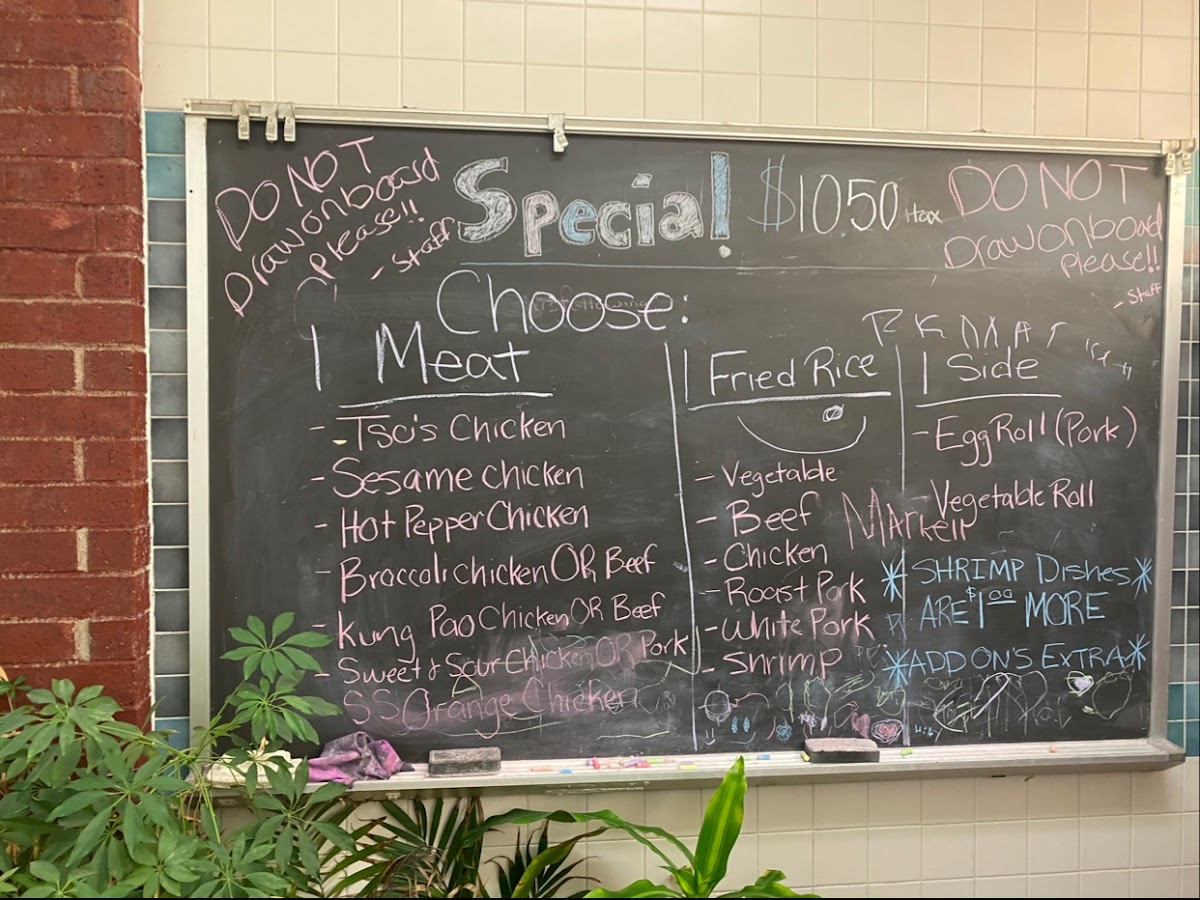 DO NOT
Draw on board
please!!
- Staff
Special!
$10.50 +tax
DO NOT
Draw on board
please!!
- Staff
Choose:
1 Meat
- Tso's Chicken
- Sesame chicken
- Hot Pepper Chicken
- Broccoli chicken OR Beef
- Kung Pao Chicken OR Beef
- Sweet & Sour Chicken OR Pork
Orange Chicken
1 Fried Rice
- Vegetable
- Beef
- Chicken
- Roast Pork
- White Pork
- Shrimp
Markell
1 Side
- Egg Roll (Pork)
- Vegetable Roll
*SHRIMP Dishes*
ARE $1.00 MORE
*ADD ON'S EXTRA*